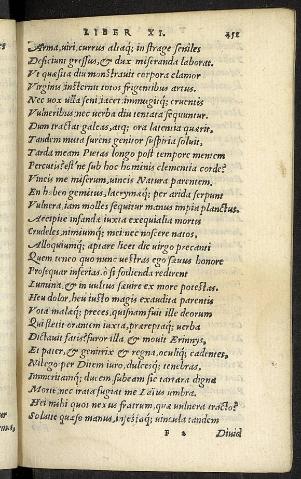 LIBER XI. 151
Arma, uiri, currus aliaq; in strage seniles
Deficiunt gressus, & dux miseranda laborat.
Vt quæsita diu monstrauit corpora clamor
Virginis, insternit totos frigentibus artus.
Nec uox ulla seni, iacet immugitq; cruentis
Vulneribus: nec uerba diu tentata sequuntur.
Dum tractat galeas, atq; ora latentia quærit,
Tandem muta furens genitor suspiria soluit,
Tarda meam Pietas longo post tempore mentem
Percutis? est ne sub hoc hominis clementia corde?
Vincis me miserum, uincis Natura parentem.
En habeo gemitus, lacrymæq; per arida serpunt
Vulnera, iam molles sequitur manus impia planctus.
Accipite infandæ iuxta exequialia mortis
Crudeles, nimiumq; mei: nec noscere natos,
Alloquiumq; aptare licet dic uirgo precanti
Quem teneo quo nunc uestras ego sæuus honore
Prosequar inferias. ô si fodienda redirent
Lumina, & in uultus sæuire ex more potestas.
Heu dolor, heu iusto magis exaudita parentis
Vota malæq; preces, quisnam fuit ille deorum
Qui stetit orantem iuxta, præreptaq; uerba
Dictauit fatis? furor illa & mouit Erinnys,
Et pater, & genitrix & regna, oculiq; cadentes,
Nil ego: per Ditem iuro, dulcesq; tenebras,
Immeritamq; ducem subeam sic tartara digna
Morte nec irata fugiat me Laius umbra.
Hei mihi quos nexus fratrum, quæ uulnera tracto?
Soluite quæso manus, infestaq; uincula tandem
F 2 Diuid